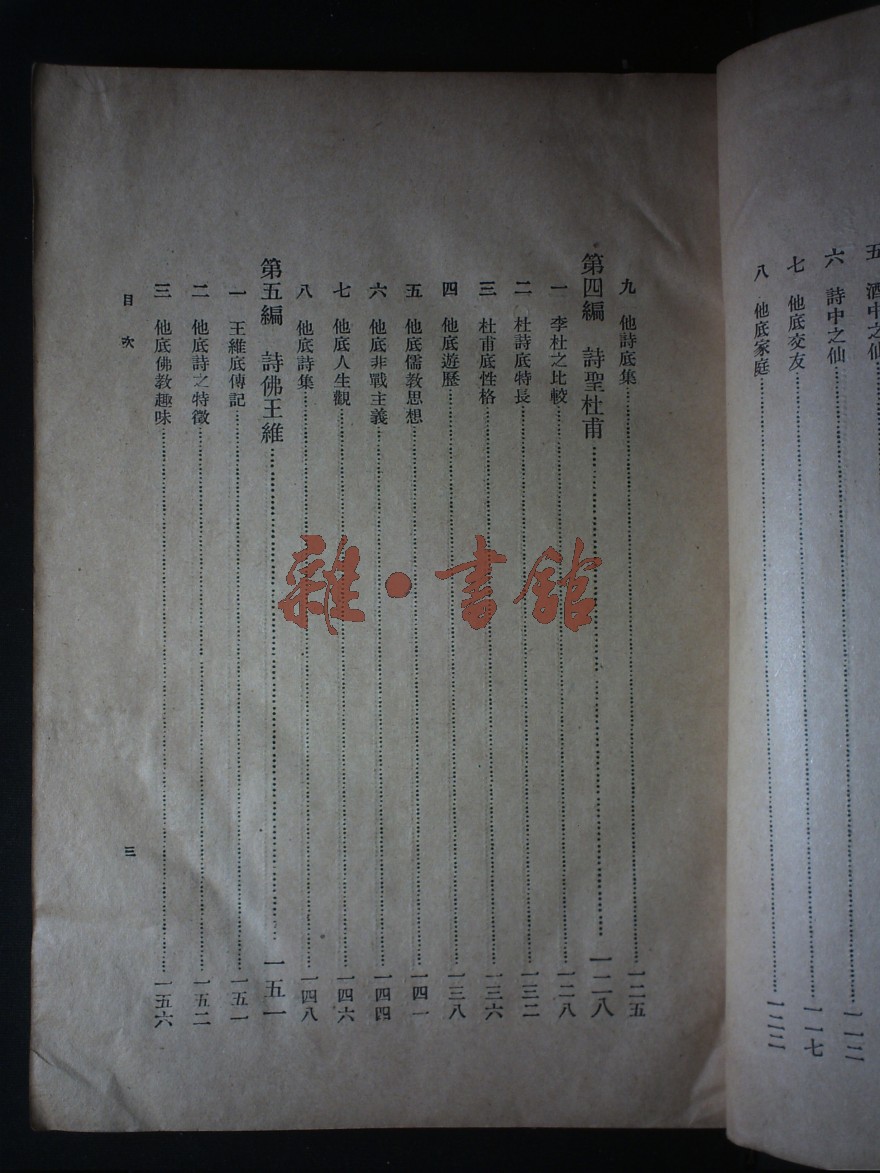 五 酒中之仙……一一二
六 詩中之仙……一一二
七 他底交友……一一七
八 他底家庭……一二二
九 他詩底集……一二五
第四編 詩聖杜甫……一二八
一 李杜之比較……一二八
二 杜詩底特長……一三二
三 杜甫底性格……一三六
四 他底遊歷……一三八
五 他底儒教思想……一四一
六 他底非戰主義……一四四
七 他底人生觀……一四六
八 他底詩集……一四八
第五編 詩佛王維……一五一
一 王維底傳記……一五一
二 他底詩之特徵……一五二
三 他底佛教趣味……一五六
目次 三
雜·書館